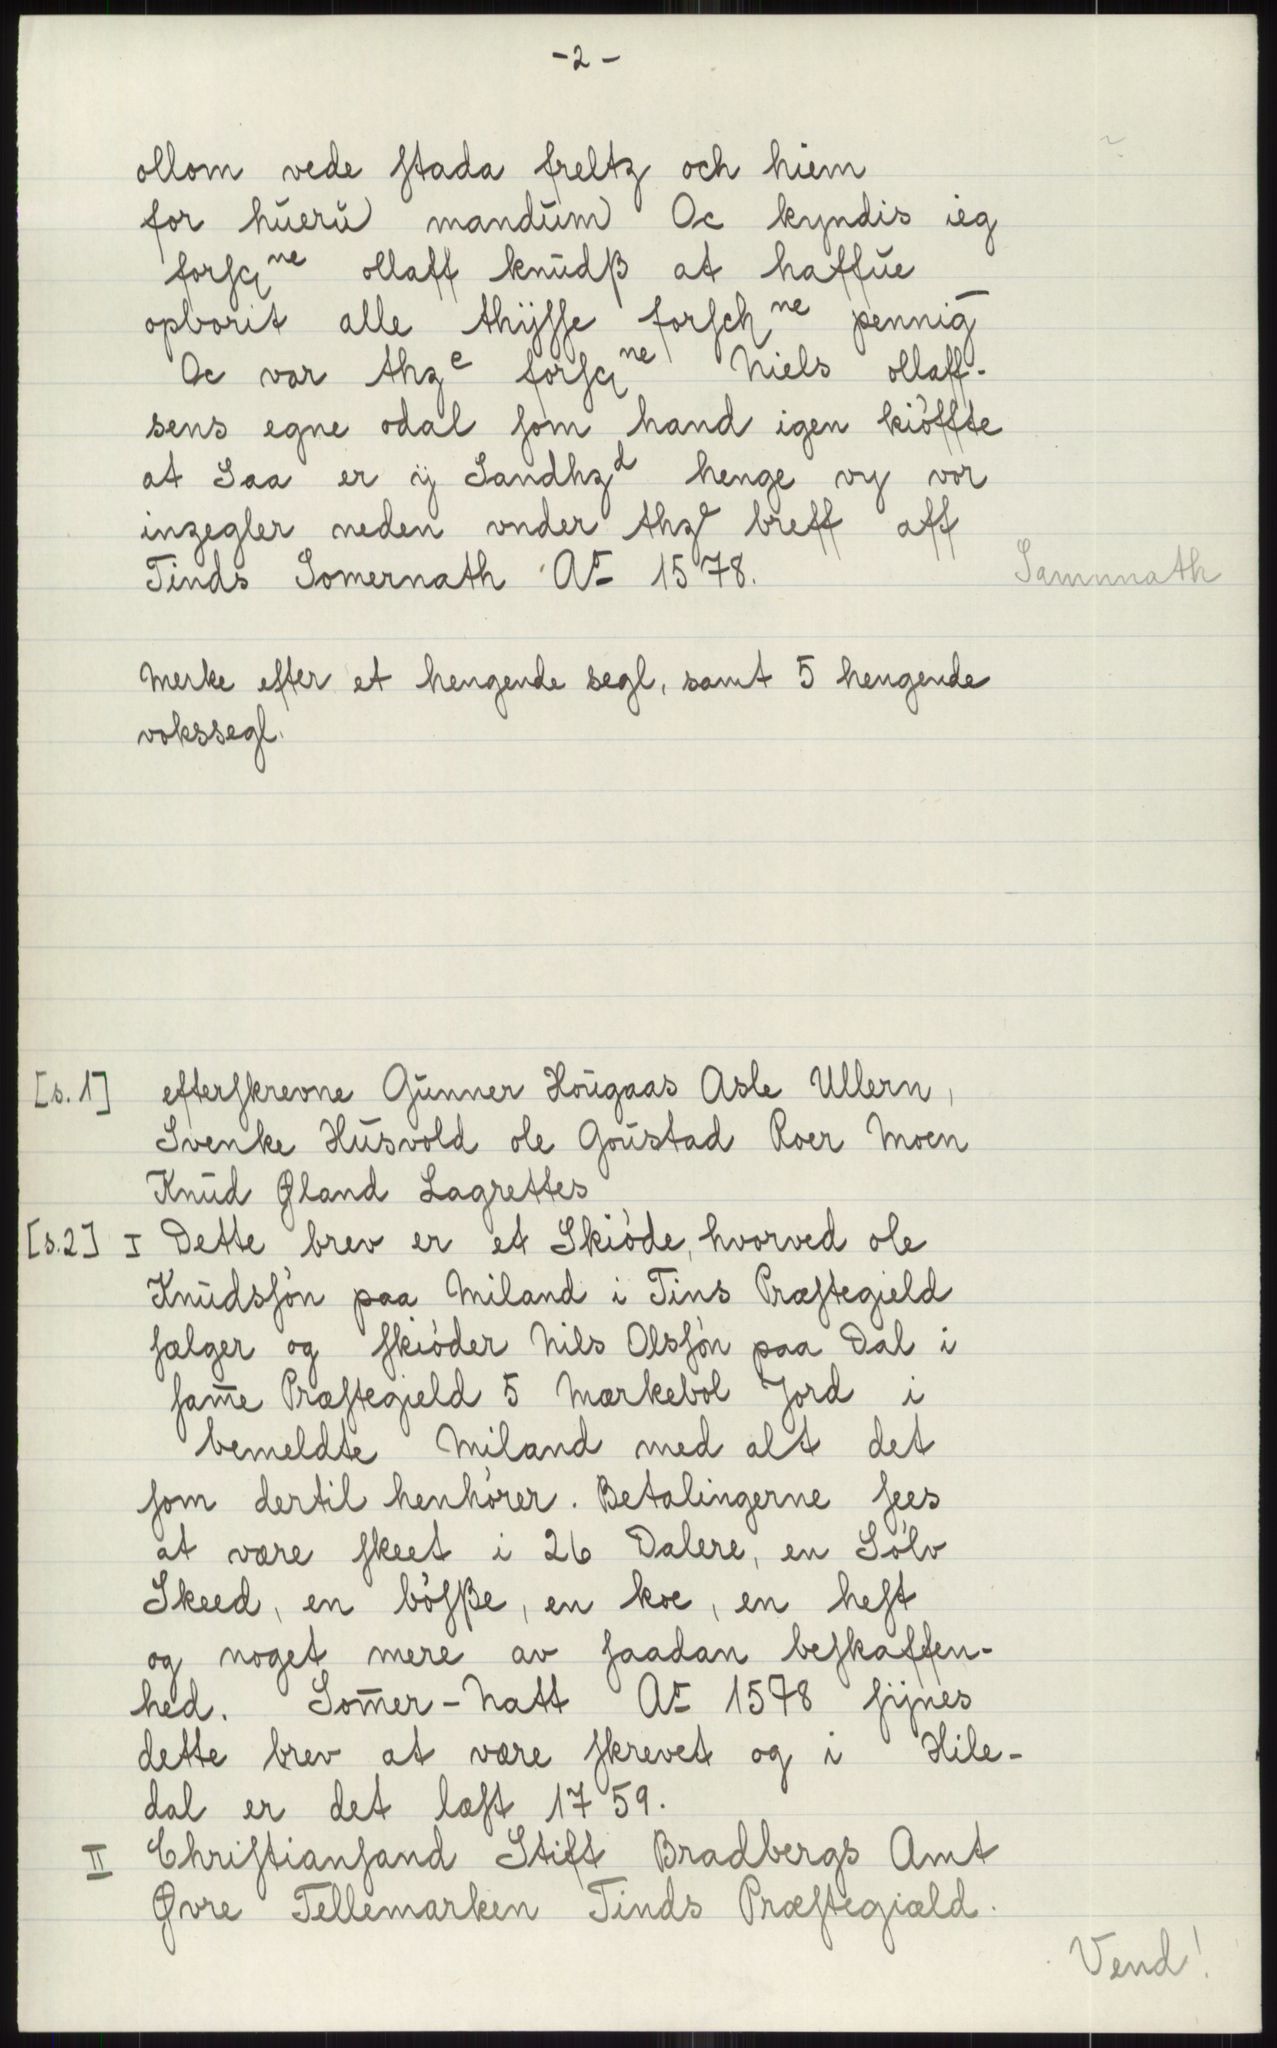 -2-
ollom vede ſtada freltz och hiem
for hűerű mandűm Oc kyndis ieg
forſqⁿᵉ ollaff knűdß at haffűe
opborit alle thÿſſe forſchⁿᵉ pennig̅
Oc var thzᵉ forſqⁿᵉ Niels ollaff-
sens egne odal ſom hand igen kiöffte
at Saa er ij Sandhzᵈ henge vy vor
inzegler neden vnder thzᵉ breff aff
Tinds Somernath Aº 1578.
Samnnath
Merke efter et hengende segl, samt 5 hengende
vokssegl.
[s.1] efterſkrevne Gűnner Hoűgaas Asle Ullern,
Svenke Hűsvold ole Goűstad Roer Moen
Knűd Øland Lagrettes
[s.2] I Dette brev er et Skióde, hvorved ole
Knűdsſón paa Miland i Tins Præſtegield
ſælger og ſkióder Nils Olsſón paa Dal i
ſam̅e Præſtegield 5 Mærkebol Jord i
bemeldte Miland med alt det
ſom dertil henhórer. Betalingerne ſees
at være ſkeet i 26 Dalere, en Sólv
Skeed, en bóſße, en koe, en heſt
og noget mere av ſaadan beſkaffen-
hed. Som̅er-Natt Aº 1578 ſÿnes
dette brev at være ſkrevet og i Hile-
dal er det læſt 1759.
II Chriſtianſand Stift Bradbergs Amt
Øvre Tellemarken Tinds Præſtegiæld.
Vend!